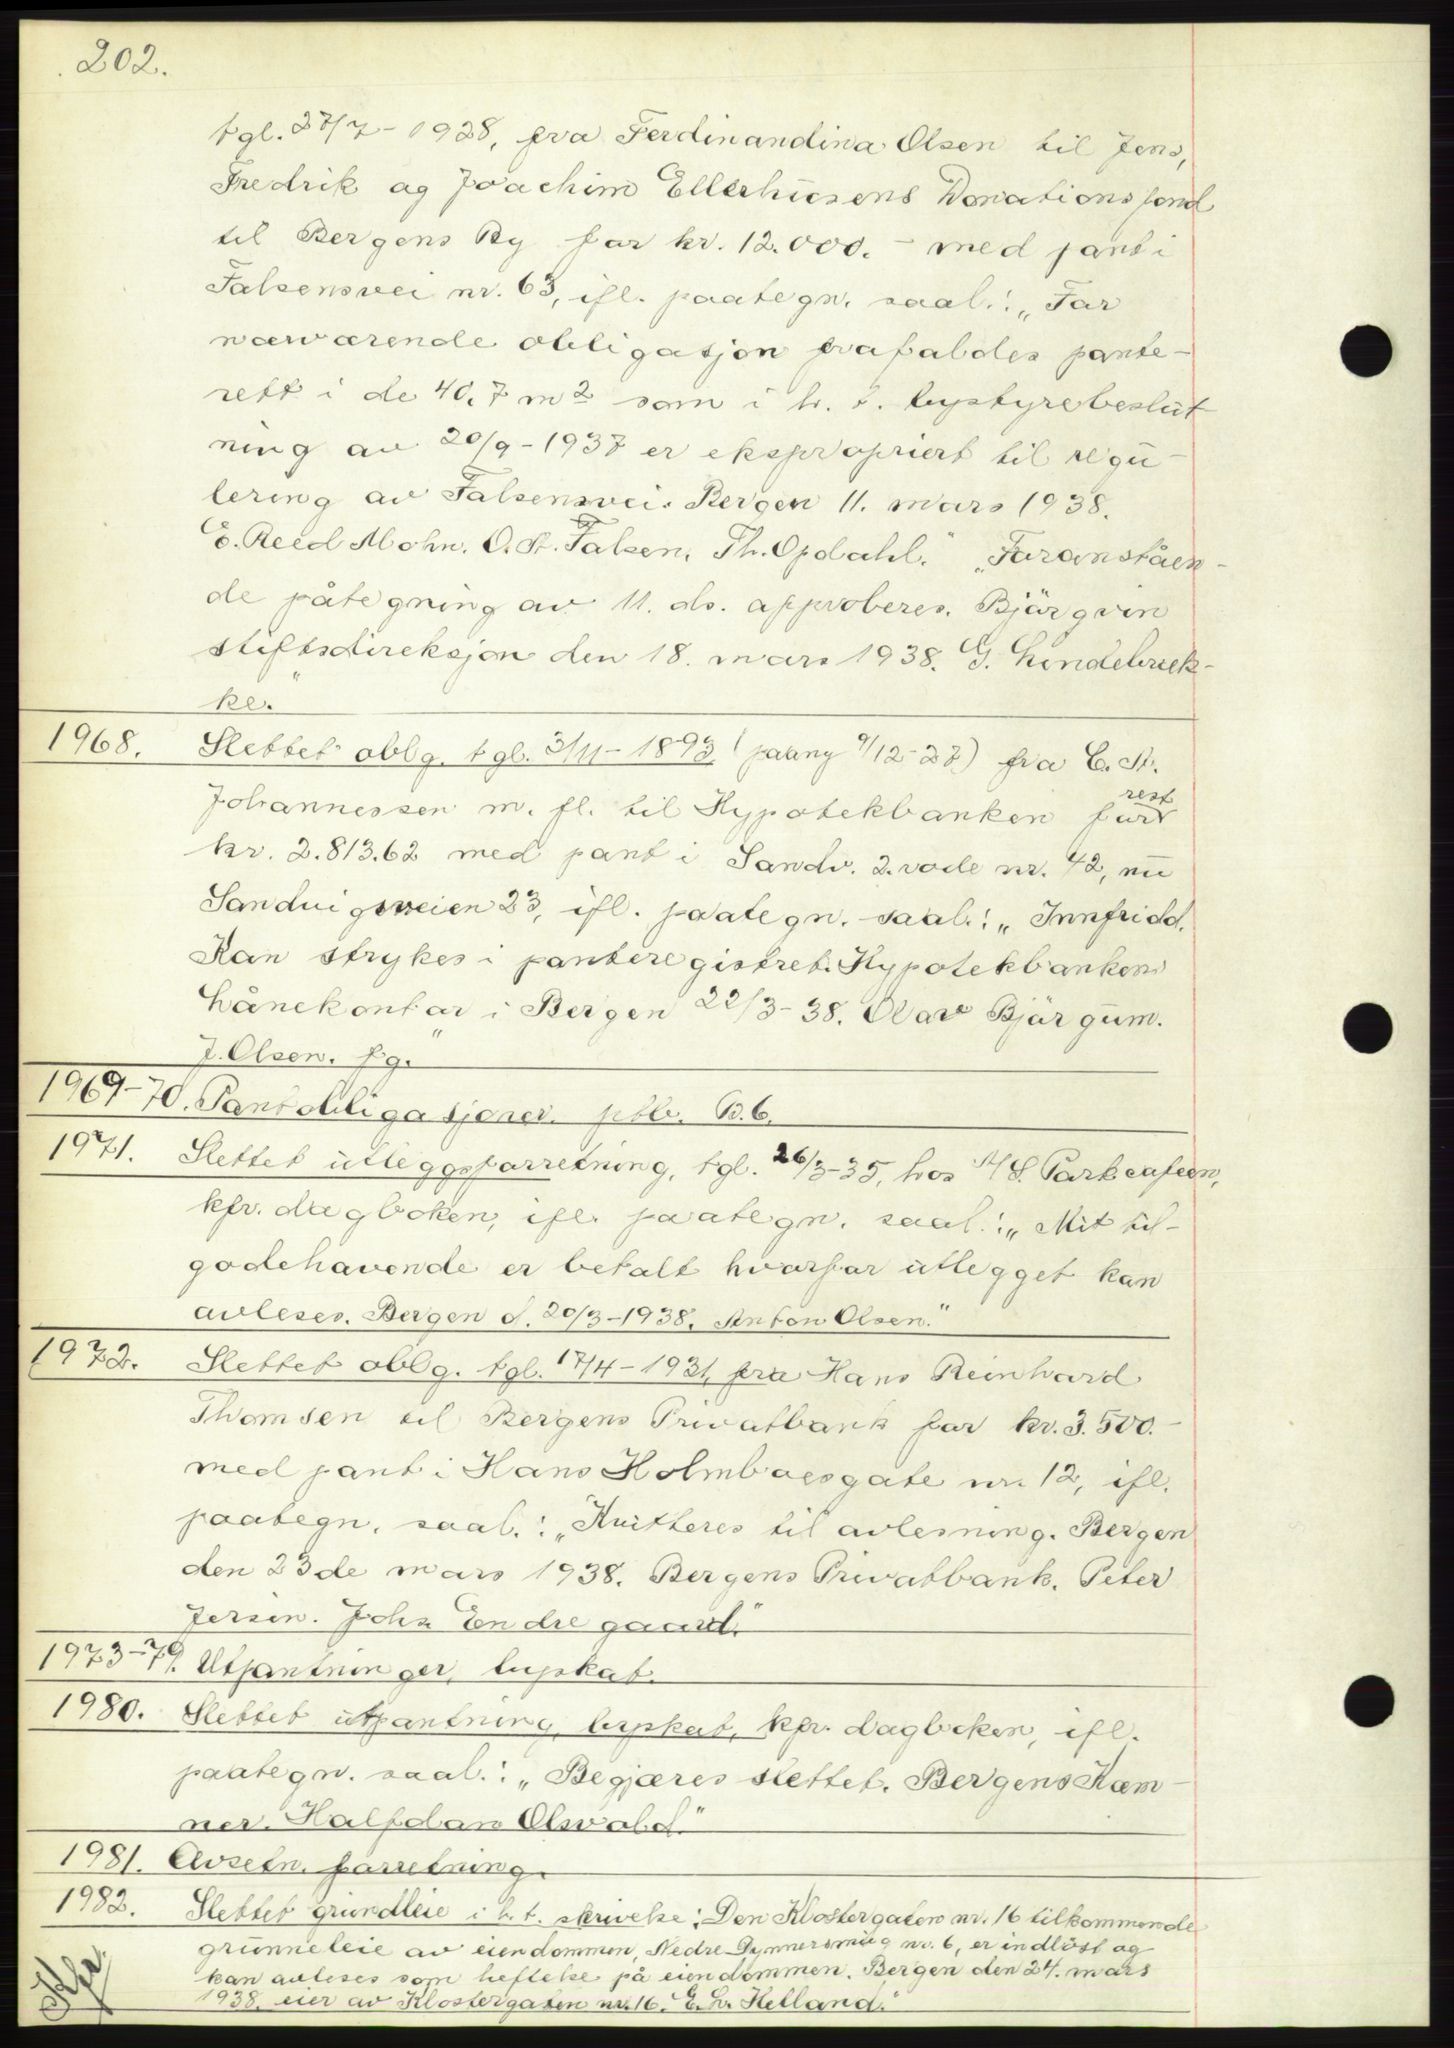 202.
tgl. 27/7-1928, fra Ferdinandina Olsen til Jens,
Fredrik og Joachim Ellerhusens Donationsfond
til Bergens By for kr. 12.000.- med pant i
Falsensvei nr. 63, ifl. paategn. saal.: „For
nærværende obligasjon frafaldes pante-
rett i de 40.7 m2 som i h. t. bystyrebeslut
ning av 20/9-1937 er ekspropriert til regu-
lering av Falsensvei. Bergen 11. mars 1938.
E. Reed Mohn. O. St. Falsen. Th. Opdahl." „Foranståen-
de påtegning av 11. ds. approberes. Bjørgvin
stiftsdireksjon den 18. mars 1938. G. Lindebræk-
ke."
1968. Slettet oblg. tgl. 3/11-1893 (paany 9/12-27) fra C. A.
Johannessen m. fl. til Hypotekbanken for
rest
kr. 2.813.62 med pant i Sandv. 2. rode nr. 42, nu
Sandvigsveien 23, ifl. paategn. saal.: „Innfridd.
Kan strykes i panteregistret. Hypotekbankens
Lånekontor i Bergen 22/3-38. Olav Bjørgum.
J. Olsen. fg."
1969-70. Pantobligasjoner. ptb. B.6.
1971. Slettet utleggsforretning, tgl. 26/3-35, hos A/S. Parkcafeen,
kfr. dagboken, ifl. paategn. saal.: „Mit til-
godehavende er betalt hvorfor utlegget kan
avleses. Bergen d. 20/3-1938. Anton Olsen."
1972. Slettet oblg. tgl. 17/4-1931, fra Hans Reinhard
Thomsen til Bergens Privatbank for kr. 3.500.-
med pant i Hans Holmboesgate nr. 12, ifl.
paategn. saal.: „Kvitteres til avlesning. Bergen
den 23de mars 1938. Bergens Privatbank. Peter
Jersin. Johs. Endregaard."
1973-79. Utpantninger, byskat.
1980. Slettet utpantning, byskat, kfr. dagboken, ifl.
paategn. saal.: „Begjæres slettet. Bergens Kæm-
ner. Halfdan Olsvold."
1981. Avsetn. forretning.
1982. Slettet grundleie i h. t. skrivelse: Den Klostergaten nr. 16 tilkommende
grunneleie av eiendommen, Nedre Dynnersmug nr. 6, er indløst og
kan avleses som heftelse på eiendommen. Bergen den 24. mars
1938. eier av Klostergaten nr. 16. E. L. Helland."
Kfr.